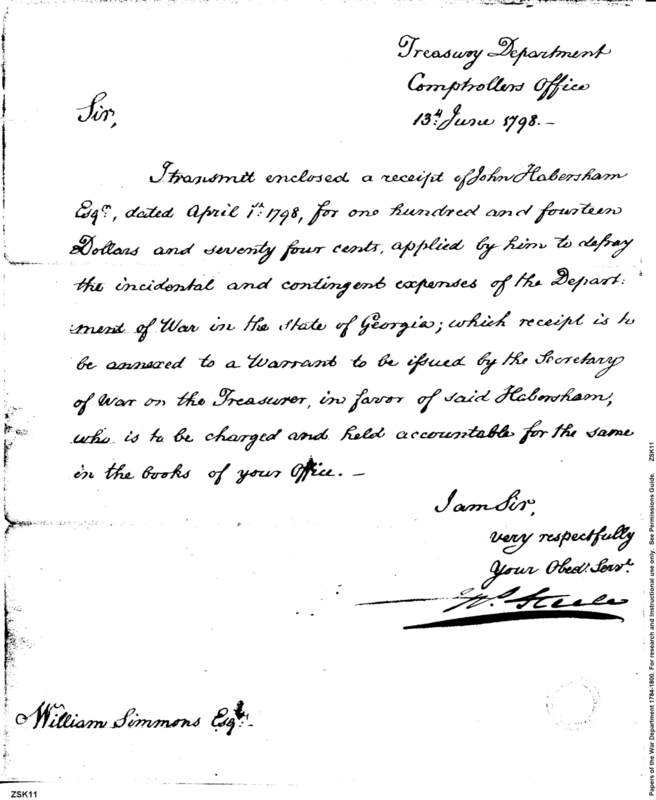 Treasury Department
Comptrollers Office
13th June 1798.-
Sir,
I transmit enclosed a receipt of John Habersham
Esqr., dated April 1st. 1798, for one hundred and fourteen
Dollars and seventy four cents, applied by him to defray
the incidental and contingent expenses of the Depart:
:ment of War in the State of Georgia; which receipt is to
be annexed to a Warrant to be issued by the Secretary
of War on the Treasurer, in favor of said Habersham,
who is to be charged and held accountable for the same
in the books of your Office.-
I am Sir,
very respectfully
Your Obed. Servt.
Jno. Steele
William Simmons Esqr.
ZSK11
Papers of the War Department 1784-1800. For research and instructional use only. See Permissions Guide. ZSK11